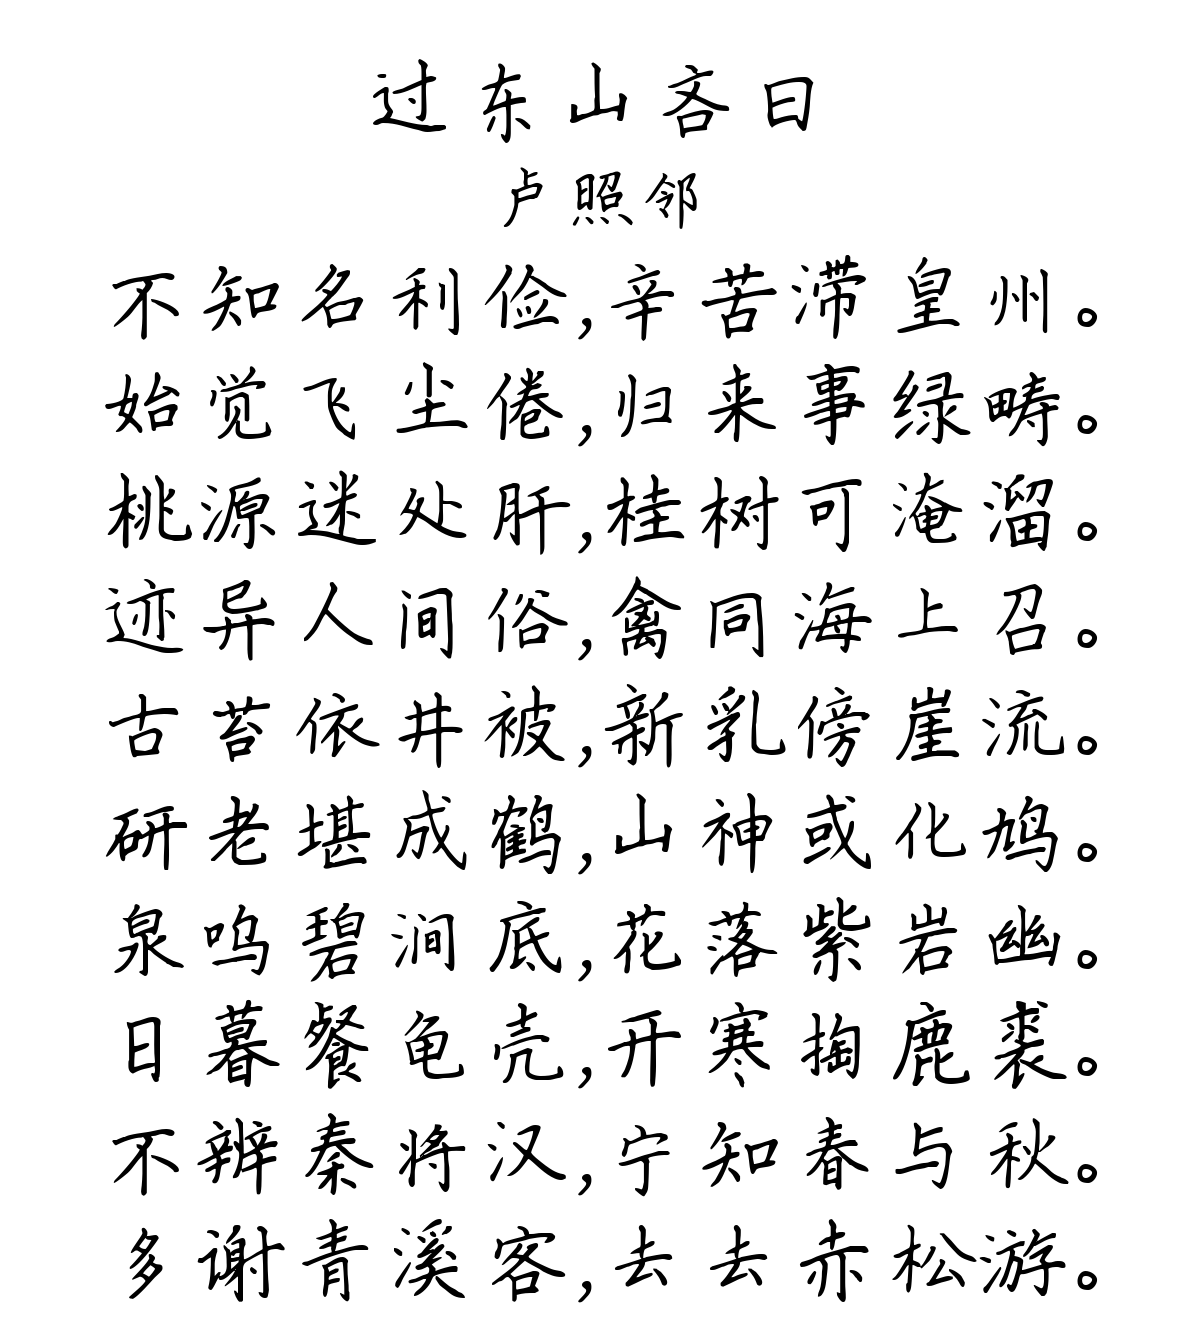 过东山吝曰
卢照邻
不知名利俭,辛苦滞皇州。
始觉飞尘倦,归来事绿畴。
桃源迷处肝,桂树可淹溜。
迹异人间俗,禽同海上召。
古苔依井被,新乳傍崖流。
研老堪成鹤,山神或化鸠。
泉呜碧涧底,花落紫岩幽。
日暮餐龟壳,开寒掏鹿裘。
不辨秦将汉,宁知春与秋。
多谢青溪客,去去赤松游。